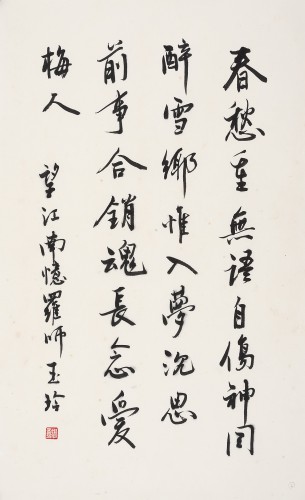 春愁重無語自傷神同
醉雪鄉惟入夢沈思
前事合銷魂長念愛
梅人 望江南憶羅師 玉玲